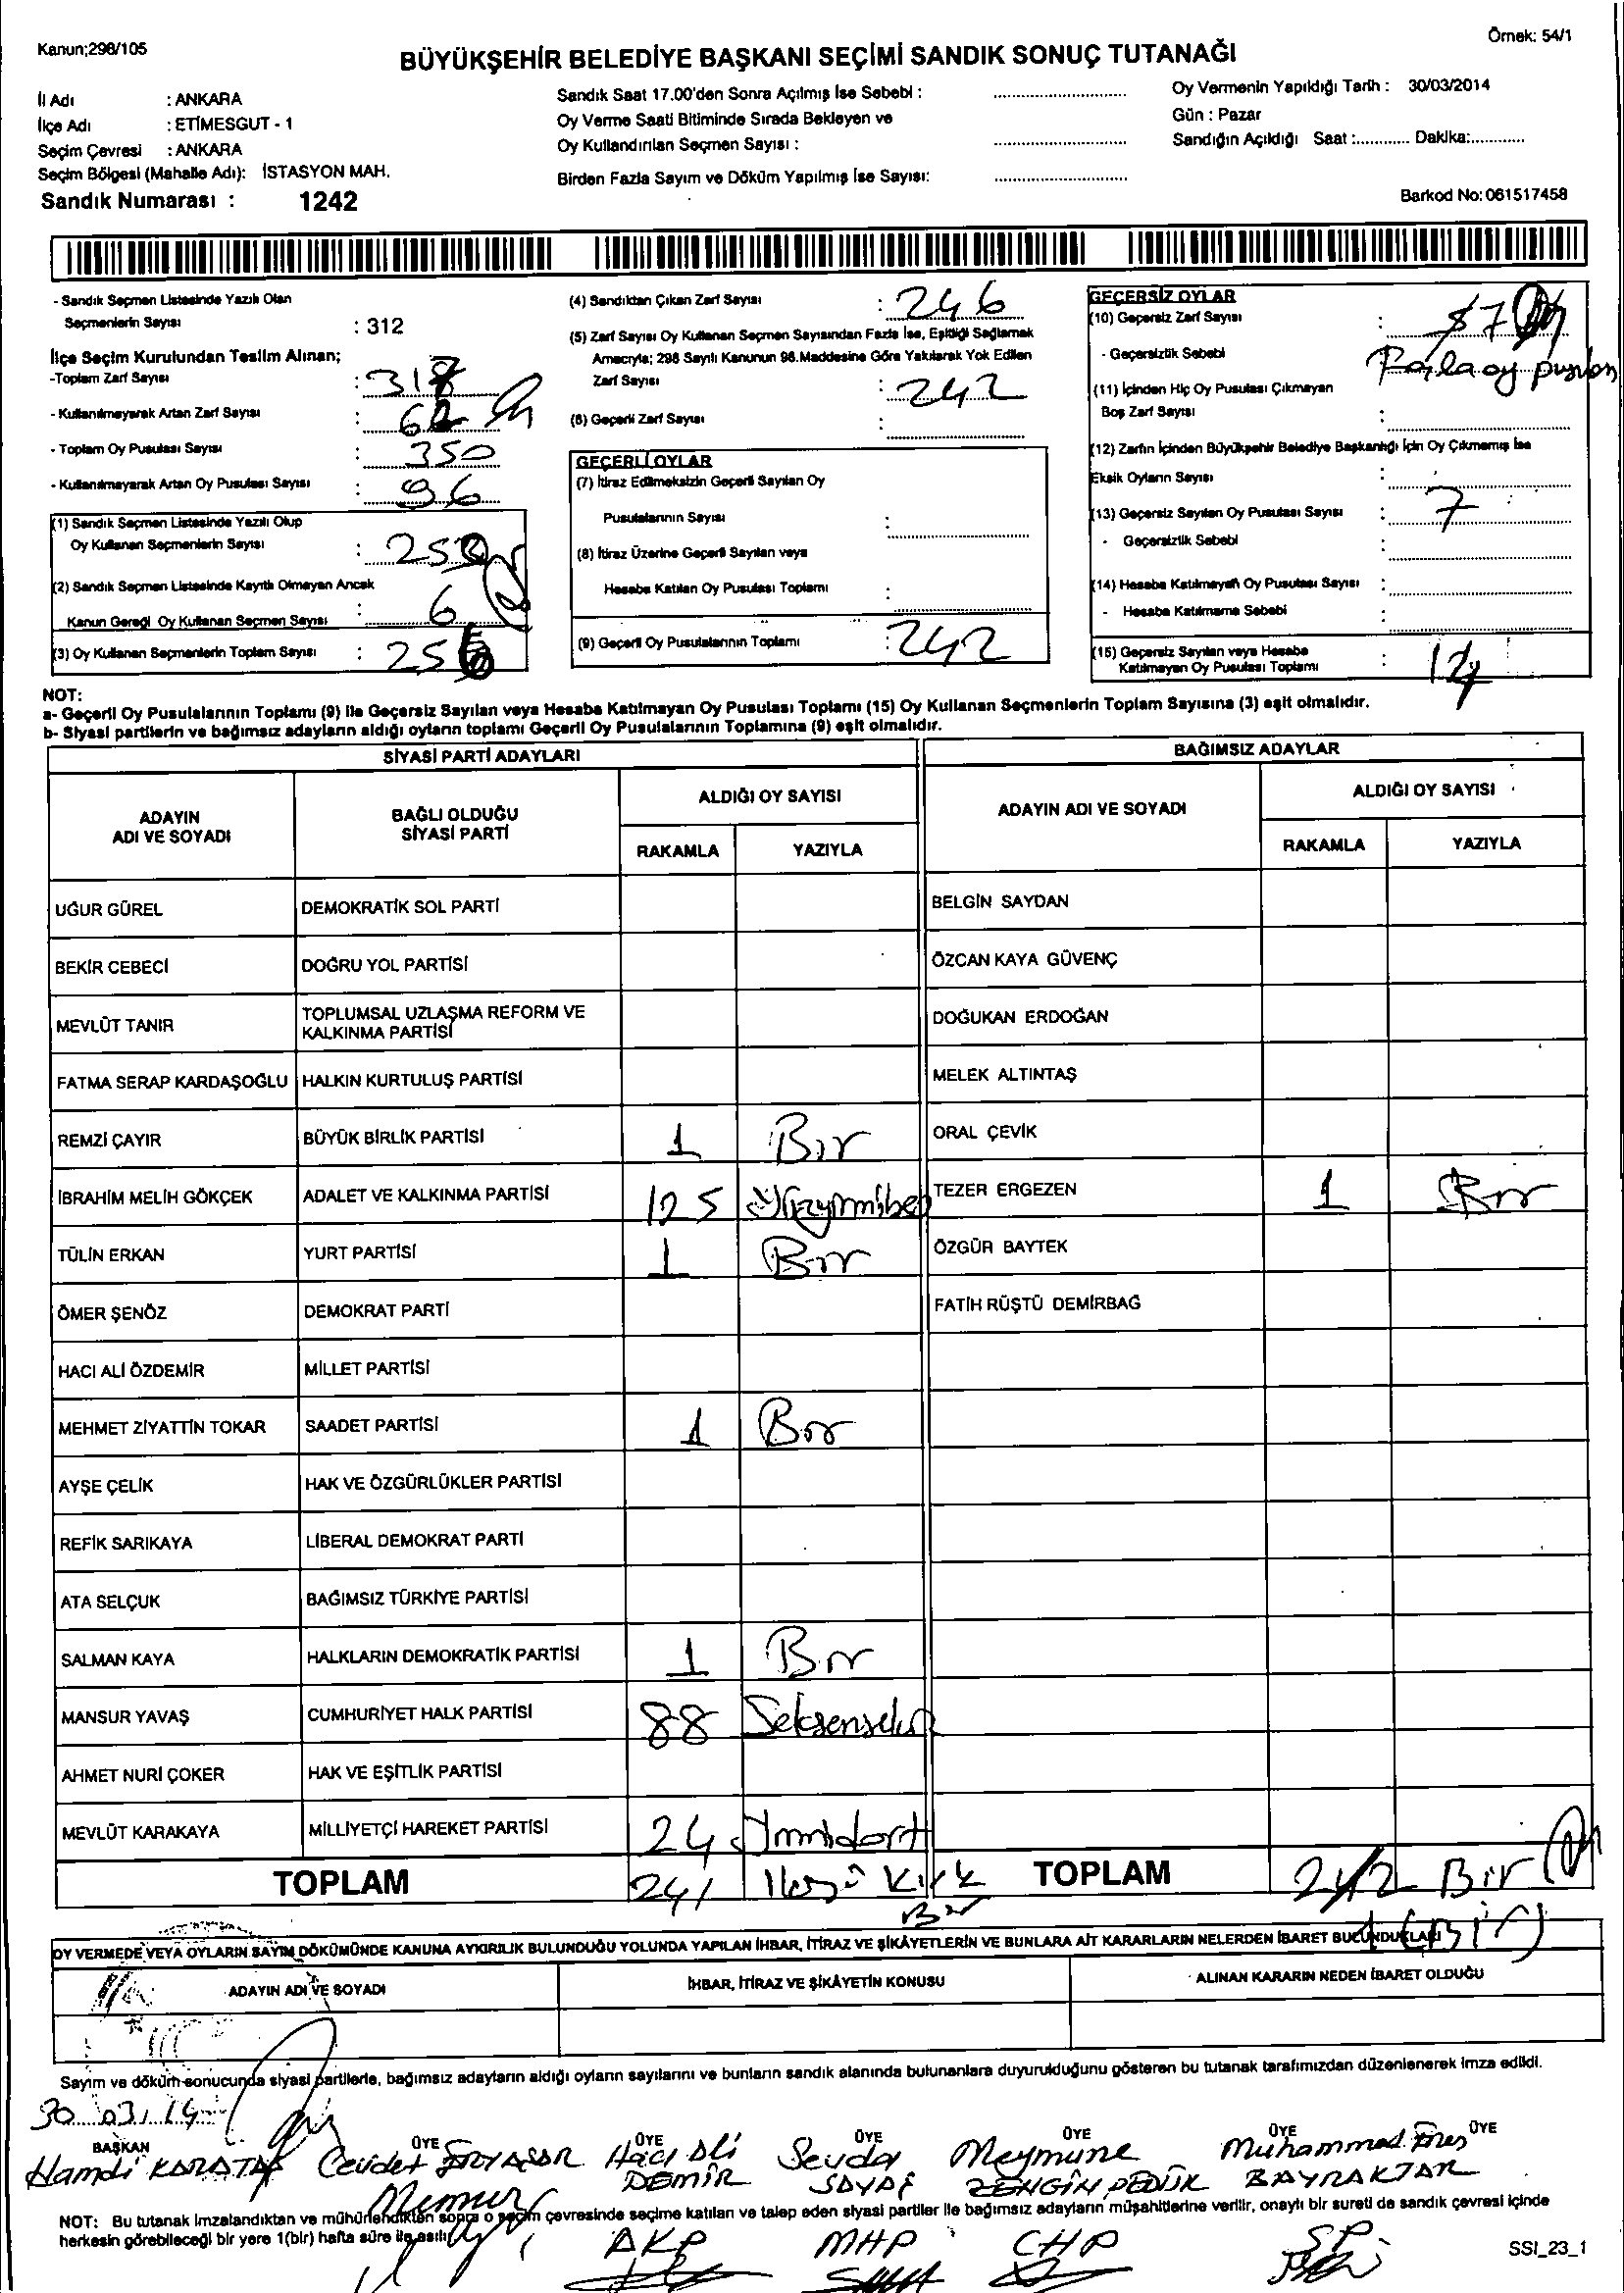 Kanun;298/105
Örnek: 54/1
BÜYÜKŞEHİR BELEDİYE BAŞKANI SEÇİMİ SANDIK SONUÇ TUTANAĞI
İl Adı : ANKARA
İlçe Adı : ETİMESGUT - 1
Seçim Çevresi : ANKARA
Seçim Bölgesi (Mahalle Adı): İSTASYON MAH.
Sandık Numarası : 1242
Sandık Saat 17.00'den Sonra Açılmış İse Sebebi :
Oy Verme Saati Bitiminde Sırada Bekleyen ve
Oy Kullandırılan Seçmen Sayısı :
Birden Fazla Sayım ve Döküm Yapılmış İse Sayısı:
Oy Vermenin Yapıldığı Tarih : 30/03/2014
Gün : Pazar
Sandığın Açıldığı Saat :............ Dakika:............
Barkod No: 061517458
- Sandık Seçmen Listesinde Yazılı Olan
Seçmenlerin Sayısı : 312
İlçe Seçim Kurulundan Teslim Alınan;
-Toplam Zarf Sayısı :
- Kullanılmayarak Artan Zarf Sayısı :
- Toplam Oy Pusulası Sayısı : 350
- Kullanılmayarak Artan Oy Pusulası Sayısı : 96
(1) Sandık Seçmen Listesinde Yazılı Olup
Oy Kullanan Seçmenlerin Sayısı :
(2) Sandık Seçmen Listesinde Kayıtlı Olmayan Ancak
Kanun Gereği Oy Kullanan Seçmen Sayısı : 6
(3) Oy Kullanan Seçmenlerin Toplam Sayısı :
(4) Sandıktan Çıkan Zarf Sayısı : 246
(5) Zarf Sayısı Oy Kullanan Seçmen Sayısından Fazla İse, Eşitliği Sağlamak
Amacıyla; 298 Sayılı Kanunun 98.Maddesine Göre Yakılarak Yok Edilen
Zarf Sayısı : 242
(6) Geçerli Zarf Sayısı :
GEÇERLİ OYLAR
(7) İtiraz Edilmeksizin Geçerli Sayılan Oy
Pusulalarının Sayısı :
(8) İtiraz Üzerine Geçerli Sayılan veya
Hesaba Katılan Oy Pusulası Toplamı :
(9) Geçerli Oy Pusulalarının Toplamı : 242
GEÇERSİZ OYLAR
(10) Geçersiz Zarf Sayısı : 7
- Geçersizlik Sebebi
(11) İçinden Hiç Oy Pusulası Çıkmayan
Boş Zarf Sayısı :
(12) Zarfın İçinden Büyükşehir Belediye Başkanlığı İçin Oy Çıkmamış İse
Eksik Oyların Sayısı :
(13) Geçersiz Sayılan Oy Pusulası Sayısı : 7
- Geçersizlik Sebebi :
(14) Hesaba Katılmayan Oy Pusulası Sayısı :
- Hesaba Katılmama Sebebi :
(15) Geçersiz Sayılan veya Hesaba
Katılmayan Oy Pusulası Toplamı :
NOT:
a- Geçerli Oy Pusulalarının Toplamı (9) ile Geçersiz Sayılan veya Hesaba Katılmayan Oy Pusulası Toplamı (15) Oy Kullanan Seçmenlerin Toplam Sayısına (3) eşit olmalıdır.
b- Siyasi partilerin ve bağımsız adayların aldığı oyların toplamı Geçerli Oy Pusulalarının Toplamına (9) eşit olmalıdır.
SİYASİ PARTİ ADAYLARI
ADAYIN ADI VE SOYADI BAĞLI OLDUĞU SİYASİ PARTİ ALDIĞI OY SAYISI
RAKAMLA YAZIYLA
UĞUR GÜREL DEMOKRATİK SOL PARTİ
BEKİR CEBECİ DOĞRU YOL PARTİSİ
MEVLÜT TANIR TOPLUMSAL UZLAŞMA REFORM VE KALKINMA PARTİSİ
FATMA SERAP KARDAŞOĞLU HALKIN KURTULUŞ PARTİSİ
REMZİ ÇAYIR BÜYÜK BİRLİK PARTİSİ 1 Bir
İBRAHİM MELİH GÖKÇEK ADALET VE KALKINMA PARTİSİ 125
TÜLİN ERKAN YURT PARTİSİ 1 Bir
ÖMER ŞENÖZ DEMOKRAT PARTİ
HACI ALİ ÖZDEMİR MİLLET PARTİSİ
MEHMET ZİYATTİN TOKAR SAADET PARTİSİ 1 Bir
AYŞE ÇELİK HAK VE ÖZGÜRLÜKLER PARTİSİ
REFİK SARIKAYA LİBERAL DEMOKRAT PARTİ
ATA SELÇUK BAĞIMSIZ TÜRKİYE PARTİSİ
SALMAN KAYA HALKLARIN DEMOKRATİK PARTİSİ 1 Bir
MANSUR YAVAŞ CUMHURİYET HALK PARTİSİ 88
AHMET NURİ ÇOKER HAK VE EŞİTLİK PARTİSİ
MEVLÜT KARAKAYA MİLLİYETÇİ HAREKET PARTİSİ 24
TOPLAM 241 Kırk Bir
BAĞIMSIZ ADAYLAR
ADAYIN ADI VE SOYADI ALDIĞI OY SAYISI
RAKAMLA YAZIYLA
BELGİN SAYDAN
ÖZCAN KAYA GÜVENÇ
DOĞUKAN ERDOĞAN
MELEK ALTINTAŞ
ORAL ÇEVİK
TEZER ERGEZEN 1 Bir
ÖZGÜR BAYTEK
FATİH RÜŞTÜ DEMİRBAĞ
TOPLAM 242 Bir
1 (Bir)
OY VERMEDE VEYA OYLARIN SAYIM DÖKÜMÜNDE KANUNA AYKIRILIK BULUNDUĞU YOLUNDA YAPILAN İHBAR, İTİRAZ VE ŞİKÂYETLERİN VE BUNLARA AİT KARARLARIN NELERDEN İBARET BULUNDUKLARI
ADAYIN ADI VE SOYADI İHBAR, İTİRAZ VE ŞİKÂYETİN KONUSU ALINAN KARARIN NEDEN İBARET OLDUĞU
Sayım ve döküm sonucunda siyasi partilerle, bağımsız adayların aldığı oyların sayılarını ve bunların sandık alanında bulunanlara duyurulduğunu gösteren bu tutanak tarafımızdan düzenlenerek imza edildi.
30 03/14
BAŞKAN ÜYE ÜYE ÜYE ÜYE ÜYE ÜYE
Hamdi KARATAŞ Cevdet Hacı Ali DEMİR Sevda Meymune ZENGİN Muhammed BAYRAKTAR
Memur
NOT: Bu tutanak imzalandıktan ve mühürlendikten sonra o seçim çevresinde seçime katılan ve talep eden siyasi partiler ile bağımsız adayların müşahitlerine verilir, onaylı bir sureti de sandık çevresi içinde
herkesin görebileceği bir yere 1(bir) hafta süre ile asılır.
AKP MHP CHP SP
SSI_23_1